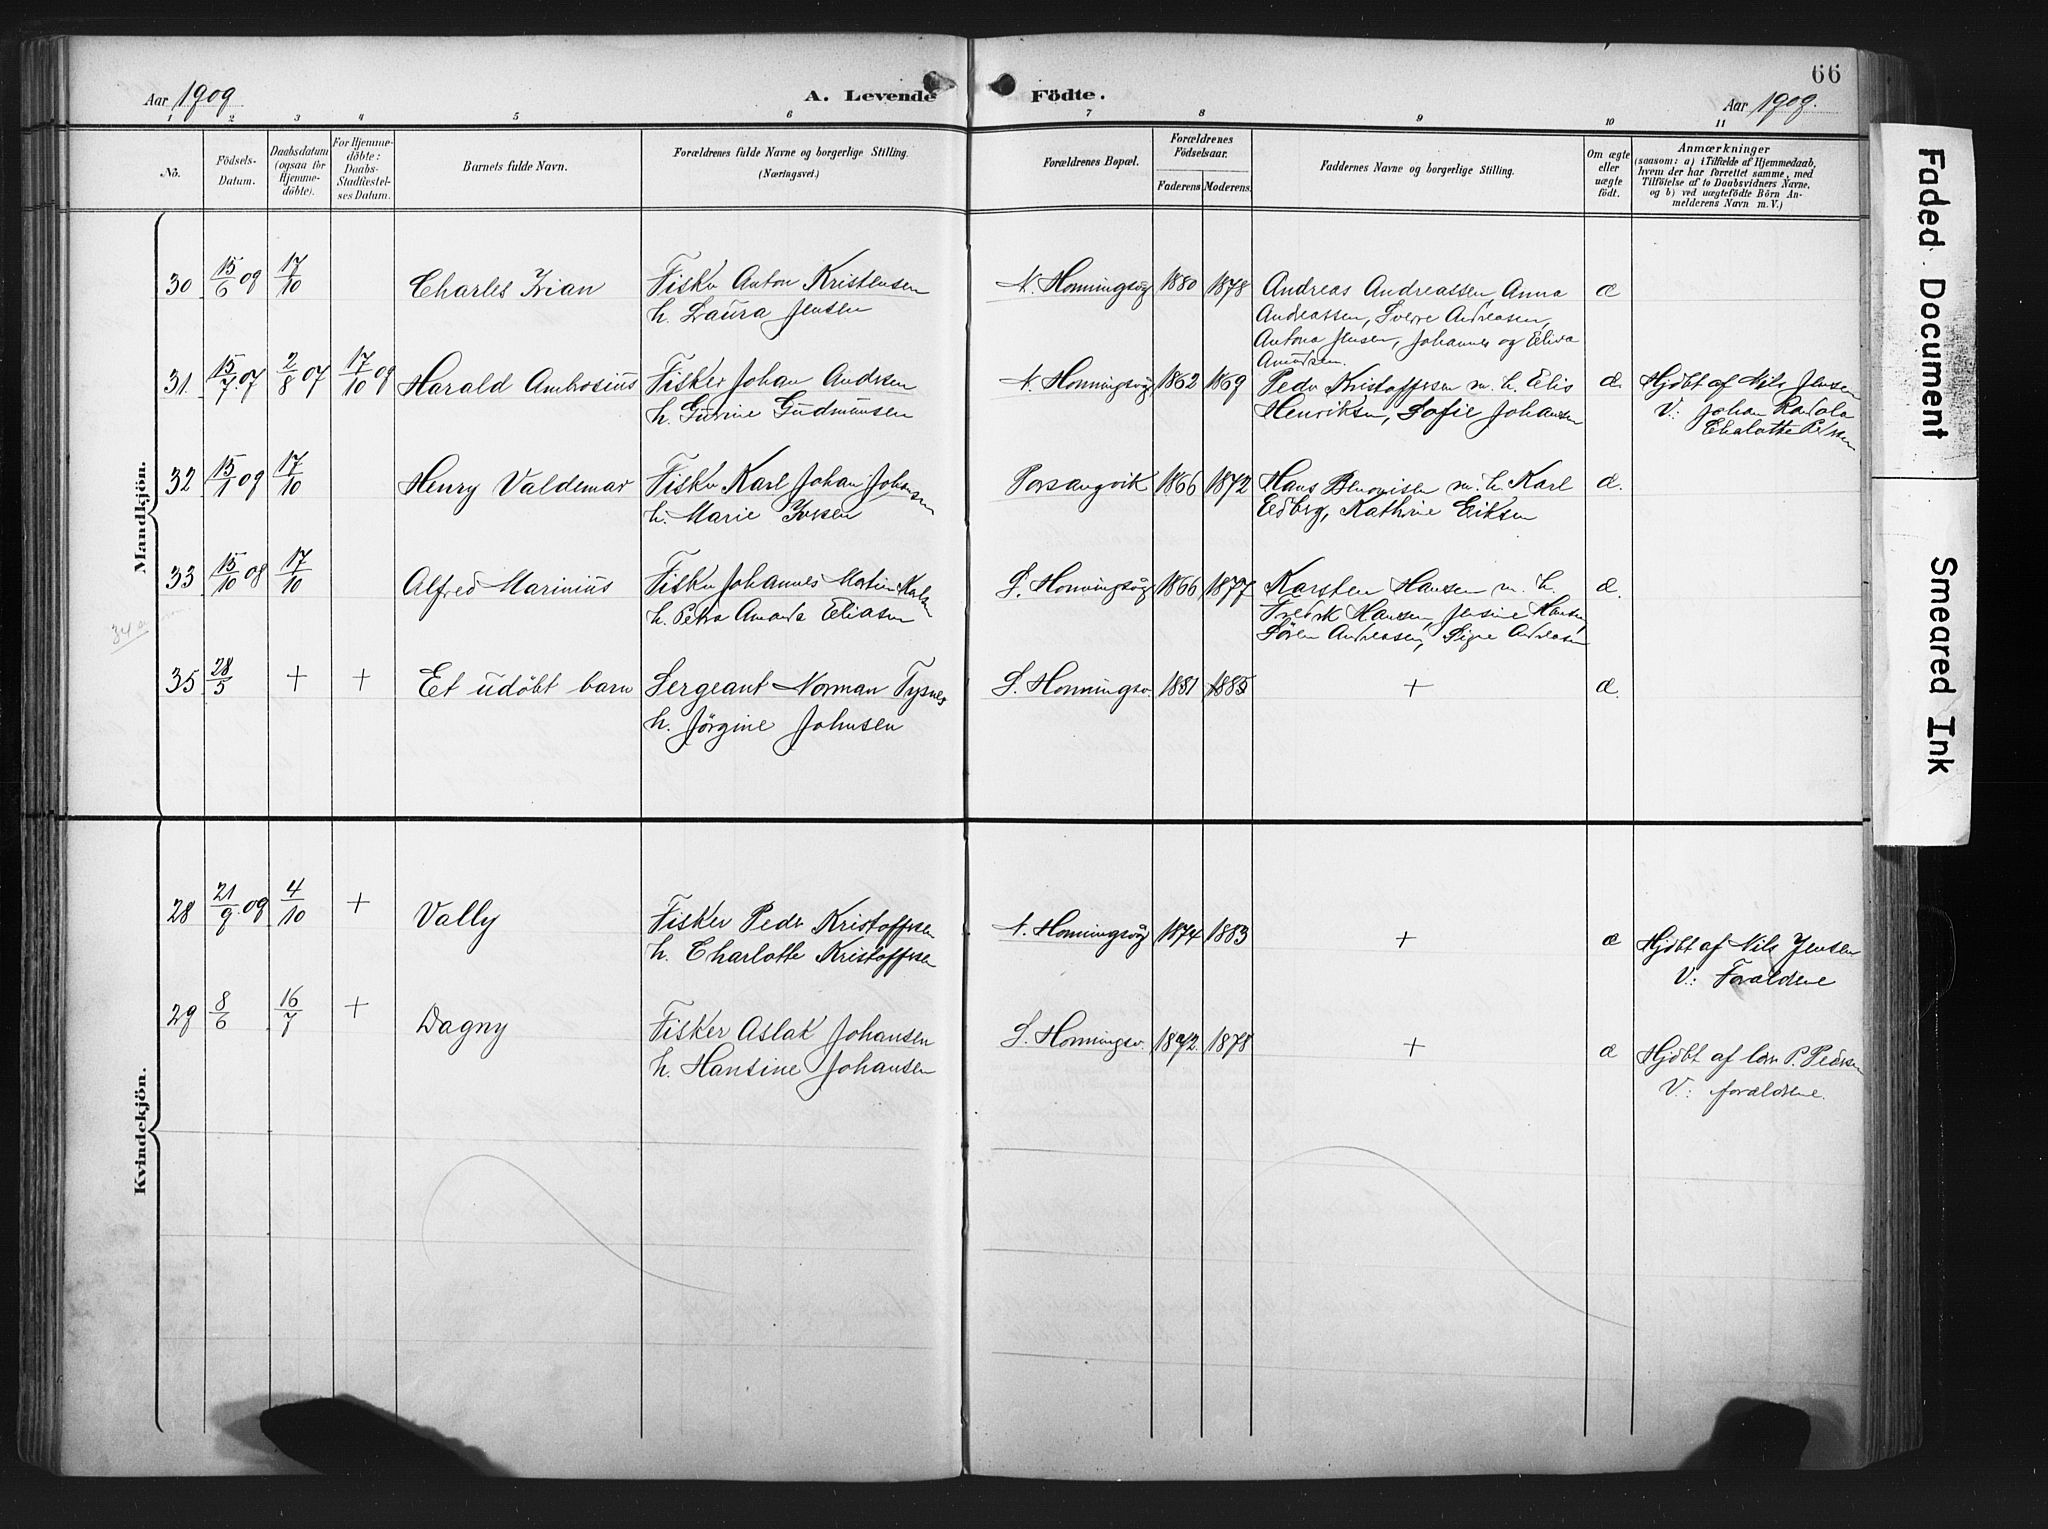 66
Aar 1909
A. Levende Födte.
Aar 1909.
1 2 3 4 5 6 7 8 9 10 11
No.
Födsels-
Datum.
Daabsdatum
(ogsaa for
Hjemme-
döbte).
For Hjemme-
döbte:
Daabs-
Stadfæstel-
ses Datum.
Barnets fulde Navn.
Forældrenes fulde Navne og borgerlige Stilling.
(Næringsvei.)
Forældrenes Bopæl.
Forældrenes
Födselsaar.
Faderens Moderens.
Faddernes Navne og borgerlige Stilling.
Om ægte
eller
uægte
födt.
Anmærkninger
(saasom: a) i Tilfælde af Hjemmedaab,
hvem der har forrettet samme, med
Tilföielse af to Daabsvidners Navne,
og b) ved uægtefödte Börn An-
melderens Navn m. V.)
Mandkjön.
30 15/6 09 17/10 Charles Ivian Fisker Anton Kristensen N. Honningsvåg 1880 1878 Andreas Andreassen, Anna æ
h. Laura Jensen Andreassen, Sverre Andreasen,
Antona Jensen, Johannes og
31. 15/7 07 2/8 07 17/10 09 Harald Ambrosius Fisker Johan Andrsen N. Honningsvåg 1862 1869 Peder Kristoffersen m. h. Elis æ. Hjdbt af Nils Jensen
h. Gurine Gudmunsen Henriksen, Sofie Johansen V: Johan
32 15/1 09 17/10 Henry Valdemar Fisker Karl Johan Johansen Porsangvik 1866 1872 Hans m. h. Karl æ.
h. Marie Iversen Edberg, Kathrine Eriksen
33 15/10 08 17/10 Alfred Marinius Fisker Johannes Martin S. Honningsvåg 1866 1877 Karsten Hansen m. h. æ.
h. Petra Amanda Eliasen Fredrik Hansen, Jensine Hansen,
Sören Andreasen, Signe Andreasen
34
35 28/5 + + Et udöbt barn Sergeant Norman Tysnes S. Honningsv. 1881 1885 + æ.
h. Jörgine Johnsen
Kvindekjön.
28 21/9 09 4/10 + Vally Fisker Peder Kristoffersen N. Honningsvåg 1874 1883 + æ Hjdbt af Nils Jensen
h. Charlotte Kristoffersen V: Foraldrene
29 8/6 16/7 + Dagny Fisker Aslak Johansen S. Honningsv. 1872 1878 + æ Hjdbt af P. Pedersen
h. Hansine Johansen V: foraldrene.
Faded Document
Smeared Ink